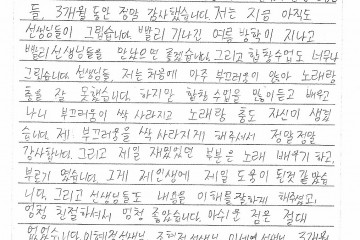 들, 3개월 동안 정말 감사했습니다. 저는 지금 아직도
선생님들이 그립습니다. 빨리 기나긴 여름 방학이 지나고
빨리 선생님들을 만났으면 좋겠습니다. 그리고 합창수업도 너무나
그립습니다. 선생님들, 저는 처음에 아주 부끄러움이 많아 노래랑
춤을 잘 못했습니다. 하지만 합창 수업을 많이 듣고 배우고
나니 부끄러움이 싹 사라지고 노래랑 춤도 자신이 생겼
습니다. 제 부끄러움을 싹 사라지게 해주셔서 정말 정말
감사합니다. 그리고 제일 재밌었던 부분은 노래 배우기 하고,
부르기 였습니다. 그게 제 인생에 제일 도움이 된것 같았습
니다. 그리고 선생님들도 내 음을 이해를 잘하게 해주셨고,
엄청 친절하셔서 엄청 좋았습니다. 아쉬운 점은 절대
없었습니다. 선생님, 선생님, 선생님 3개월